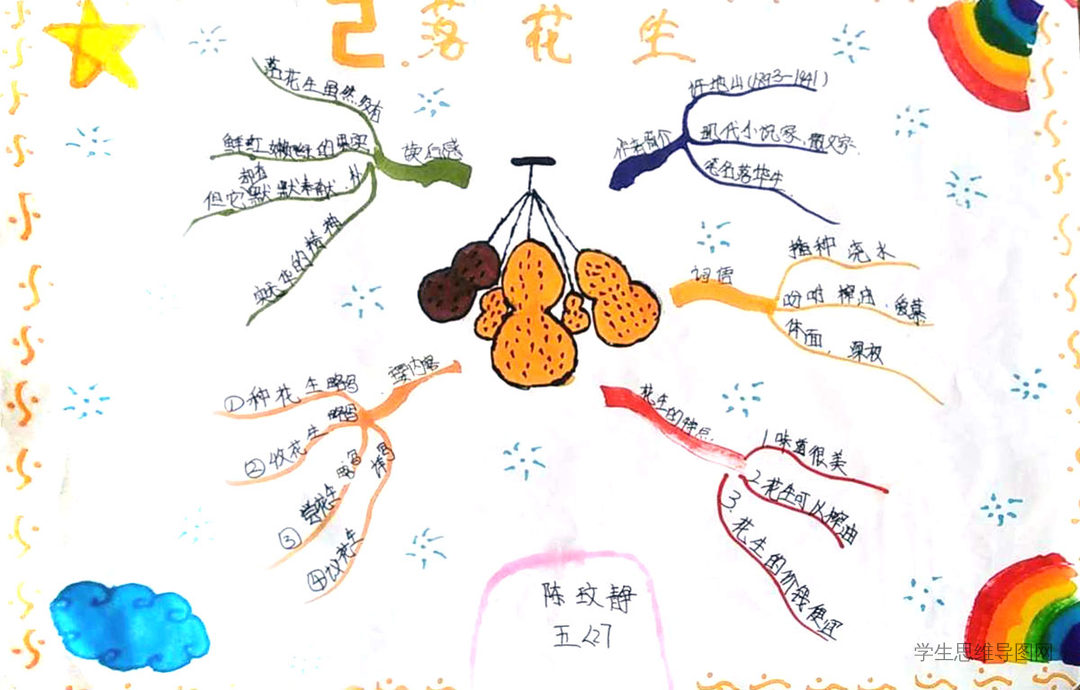 2.落花生
落花生虽然没有
鲜红嫩绿的果实
但它默默奉献、朴
实无华的精神
读后感
作者简介
许地山(1893-1941)
现代小说家、散文家
笔名落华生
词语
播种 浇水
吩咐 榨油、爱慕
体面、深夜
主要内容
①种花生 略写
②收花生 略写
③尝花生 略写
④议花生 详写
花生的特点
1.味道很美
2.花生可以榨油
3.花生的价钱便宜
陈玟静
五<27
学生思维导图网